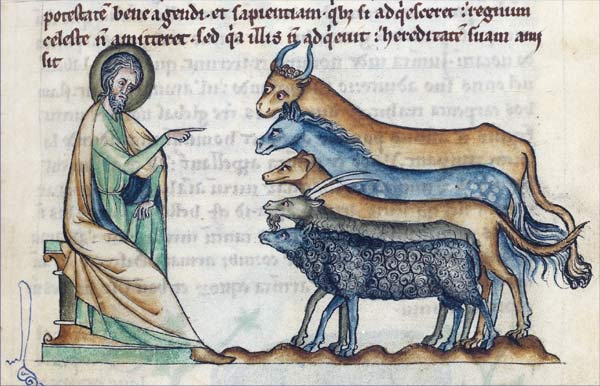 potestatē bene agendi · et sapientiam · qͥbꝫ si adqͥesceret : regnum
celeste n̄ amitteret · sed qͥa illis n̄ adqͥeuit : hereditatē suam ami
sit